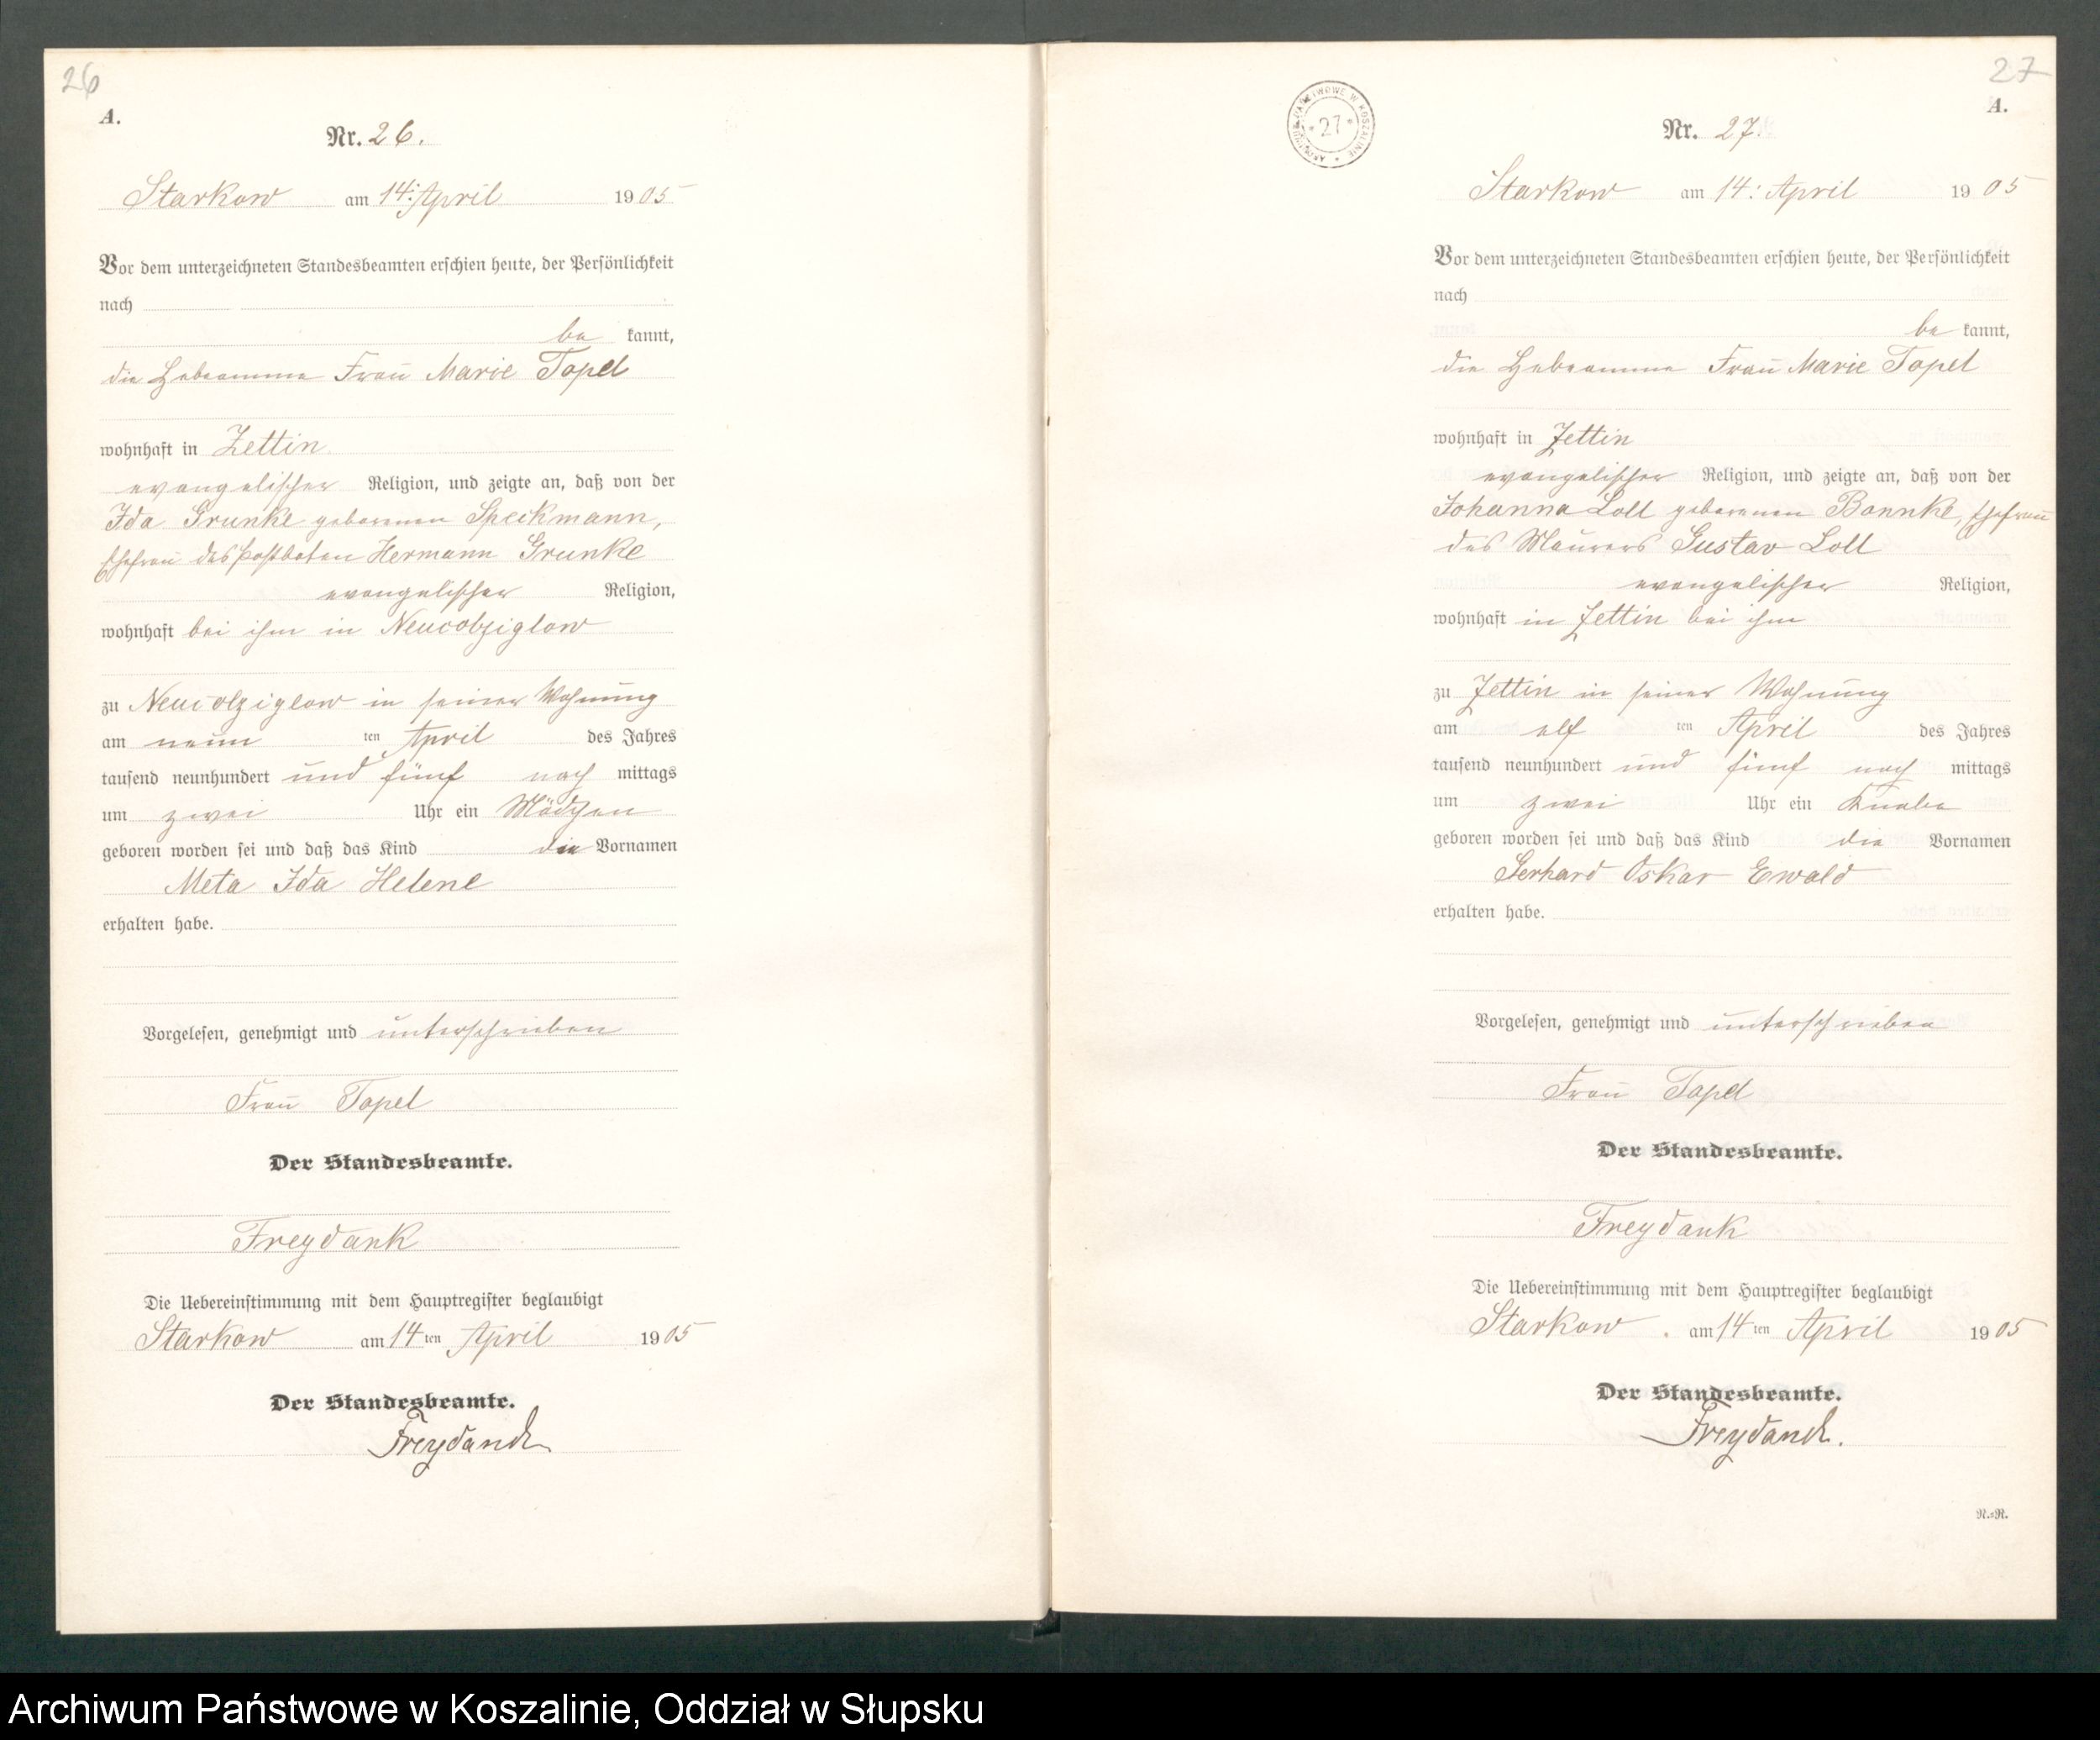 26
A.
Nr. 26.
Starkow am 14. April 1905
Vor dem unterzeichneten Standesbeamten erschien heute, der Persönlichkeit
nach
be kannt,
die Hebeamme Frau Marie Topel
wohnhaft in Zettin
evangelischer Religion, und zeigte an, daß von der
Ida Grunke geborenen Speckmann,
Ehefrau des Postboten Hermann Grunke
evangelischer Religion,
wohnhaft bei ihm in Neucolziglow
zu Neucolziglow in seiner Wohnung
am neun ten April des Jahres
tausend neunhundert und fünf nach mittags
um zwei Uhr ein Mädchen
geboren worden sei und daß das Kind die Vornamen
Meta Ida Helene
erhalten habe.
Vorgelesen, genehmigt und unterschrieben
Frau Topel
Der Standesbeamte.
Freydank
Die Uebereinstimmung mit dem Hauptregister beglaubigt
Starkow am 14 ten April 1905
Der Standesbeamte.
Freydanck
27
ARCHIWUM PAŃSTWOWE W KOSZALINIE * 27 *
A.
Nr. 27.
Starkow am 14: April 1905
Vor dem unterzeichneten Standesbeamten erschien heute, der Persönlichkeit
nach
be kannt,
die Hebeamme Frau Marie Topel
wohnhaft in Zettin
evangelischer Religion, und zeigte an, daß von der
Johanna Loll geborenen Bonnke, Ehefrau
des Maurers Gustav Loll
evangelischer Religion,
wohnhaft in Zettin bei ihm
zu Zettin in seiner Wohnung
am elf ten April des Jahres
tausend neunhundert und fünf nach mittags
um zwei Uhr ein Knabe
geboren worden sei und daß das Kind die Vornamen
Gerhard Oskar Ewald
erhalten habe.
Vorgelesen, genehmigt und unterschrieben
Frau Topel
Der Standesbeamte.
Freydank
Die Uebereinstimmung mit dem Hauptregister beglaubigt
Starkow. am 14 ten April 1905
Der Standesbeamte.
Freydanck.
N.=R.
Archiwum Państwowe w Koszalinie, Oddział w Słupsku